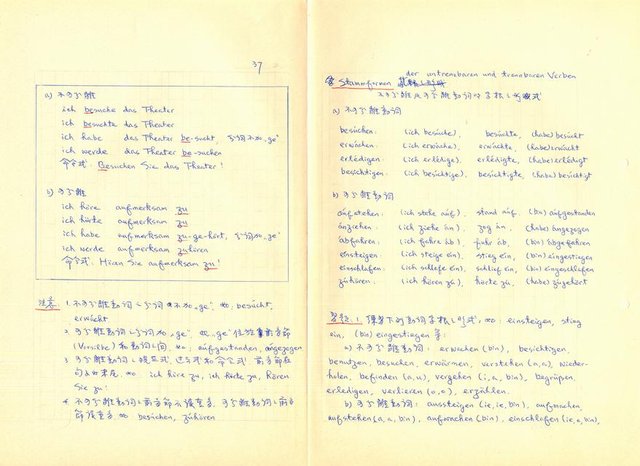 37
a) 不可分離
ich besuche das Theater
ich besuchte das Theater
ich habe das Theater be-sucht, 分詞不加„ge"
ich werde das Theater be-suchen
命令式: Besuchen Sie das Theater!
b) 可分離
ich höre aufmerksam zu
ich hörte aufmerksam zu
ich habe aufmerksam zu-ge-hört, 分詞加„ge"
ich werde aufmerksam zuhören
命令式: Hören Sie aufmerksam zu!
注意: 1. 不可分離動詞之分詞不加„ge", 如. besucht,
erwacht
2. 可分離動詞之分詞加„ge", „ge"位於前音節
(Vorsilbe) 和動詞之間, 如: aufgestanden, angezogen
3. 可分離動詞之現在式, 过去式和命令式: 前音節在
句之末尾, 如. ich höre zu, ich hörte zu, Hören
Sie zu!
4. 不可分離動詞之前音節不讀重音, 可分離動詞之前音
節讀重音, 如 besuchen, zuhören
Stammformen der untrennbaren und trennbaren Verben
不可分離及可分離動詞之字根形式
a) 不可分離動詞
besuchen: (ich besuche), besuchte, (habe) besucht
erwachen: (ich erwache), erwachte, (habe) erwacht
erledigen: (ich erledige), erledigte, (habe) erledigt
besichtigen: (ich besichtige), besichtigte, (habe) besichtigt
b) 可分離動詞
aufstehen: (ich stehe auf), stand auf, (bin) aufgestanden
anziehen: (ich ziehe an), zog an, (habe) angezogen
abfahren: (ich fahre ab), fuhr ab, (bin) abgefahren
einsteigen: (ich steige ein), stieg ein, (bin) eingestiegen
einschlafen: (ich schlafe ein), schlief ein, (bin) eingeschlafen
zuhören: (ich hören zu), hörte zu, (habe) zugehört
習題: 1. 下列動詞字根之形式, 如: einsteigen, stieg
ein, (bin) eingestiegen 等:
a) 不可分離動詞: erwachen (bin), besichtigen,
benutzen, besuchen, erwärmen, verstehen (a,a), wieder-
holen, befinden (a,u), vergehen (i,a, bin), begrüßen,
erledigen, verlieren (o,o), erzählen.
b) 可分離動詞: aussteigen (ie,ie, bin), aufmachen,
aufstehen (a,a, bin), aufwachen (bin), einschlafen (ie,a, bin),